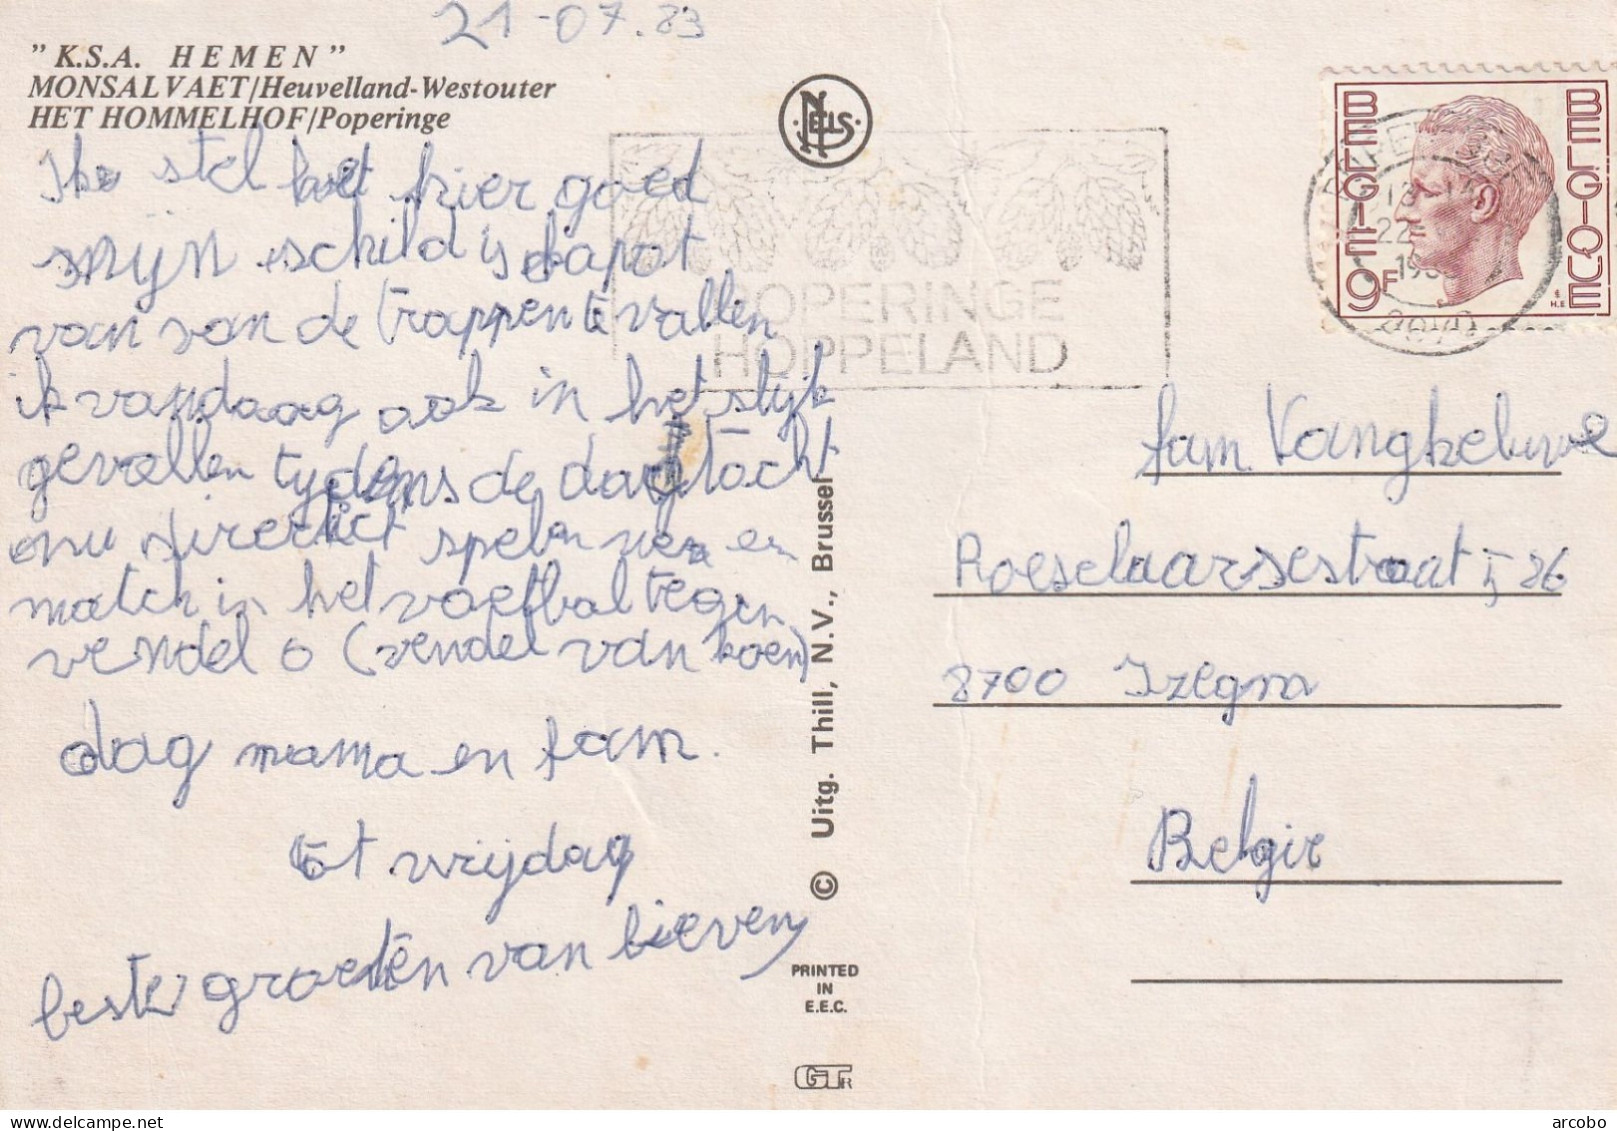 21-07.83
" K.S.A. HEMEN "
MONSALVAET/Heuvelland-Westouter
HET HOMMELHOF/Poperinge
Ik stel het hier goed
mijn schild is kapot
van van de trappen te vallen
ik vandaag ook in het slijk
gevallen tijdens de dagtocht
nu direct spelen we en
match in het voetbal tegen
vendel 0 (vendel van koen)
dag mama en fam.
tot vrijdag
beste groeten van lieven
NELS
POPERINGE
HOPPELAND
BELGIË 9F
BELGIQUE
22
© Uitg. Thill, N.V., Brussel
PRINTED
IN
E.E.C.
GTR
fam Vangheluwe
Roeselaarsestraat 526
8700 Izegm
Belgie
arcobo